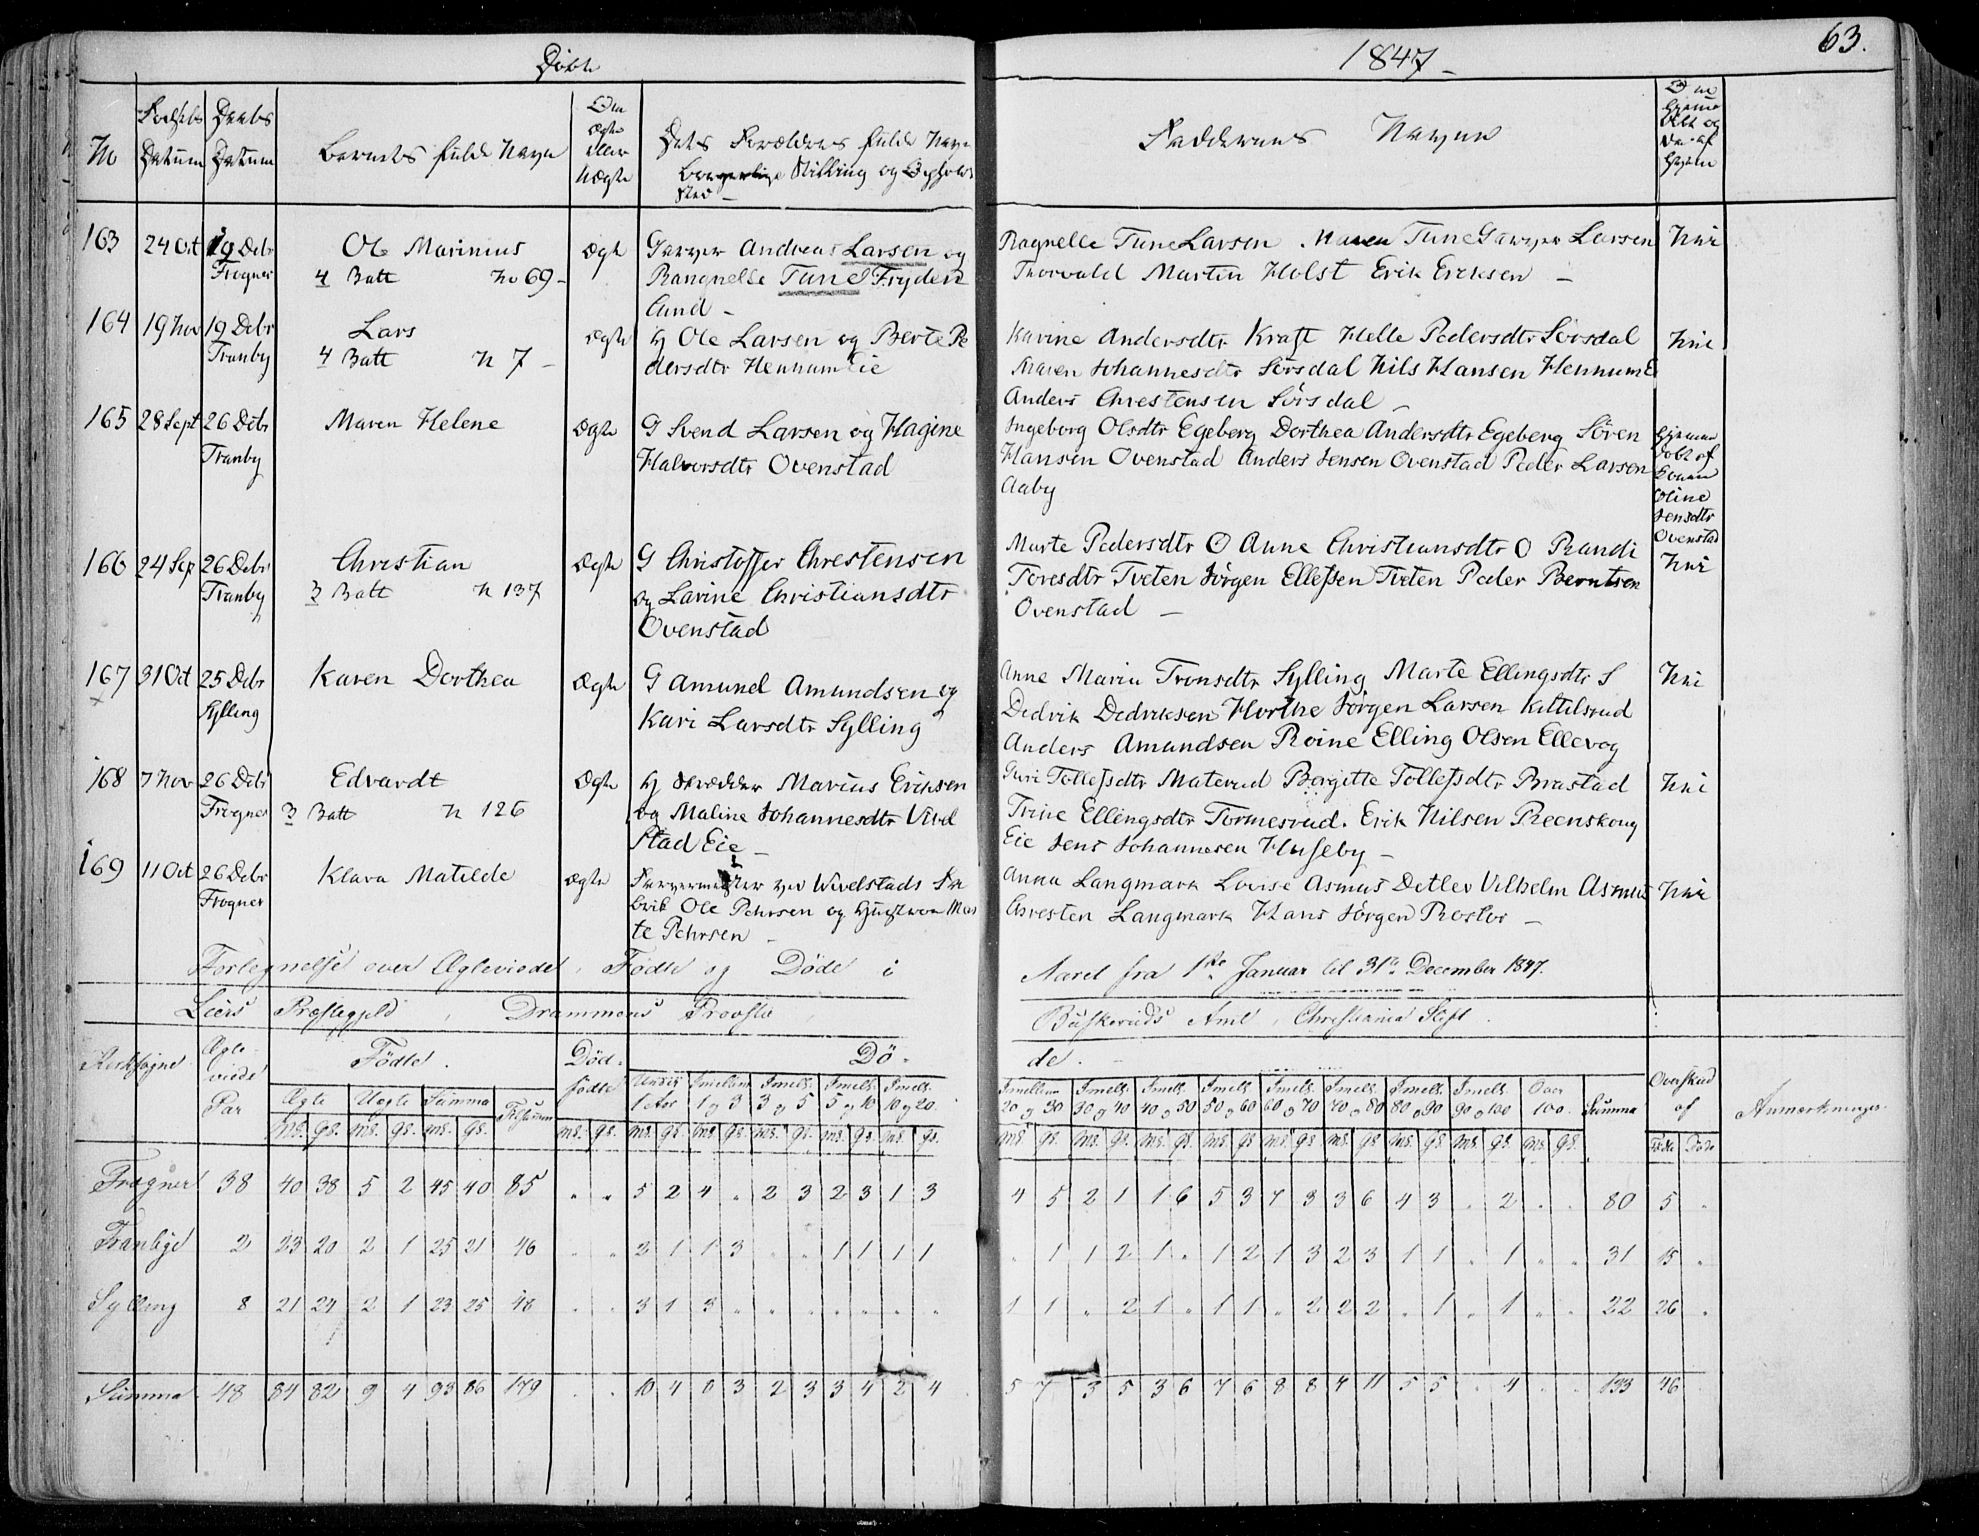 Døbte
1847
63.
No
Fødsels Datum
Daabs Datum
Barnets fulde Navn
Om Ægte eller Uægte
Dets Forældres fulde Navn
Borgerlige Stilling og Opholds
Sted –
Faddernes Navne
Om hjemme døbt og Da- af Hvem
163 24 Oct 19 Debr Frogner
Ole Marinius
4 Batt No 69 –
Ægte
Garver Andreas Larsen og
Rangnelle Tane Fryden
lund –
Ragnelle Tune Larsen Maren Tune Garver Larsen
Thorvald Martin Holst Erik Eriksen –
Nei
164 19 Nov 19 Debr Tranby
Lars
4 Batt N 7 –
Ægte
H Ole Larsen og Berte Pe
dersdtr Hennum Eie
Karine Andersdtr Kraft Helle Pedersdtr Sørsdal
Maren Johannesdtr Sørsdal Nils Hansen Hennum E
Anders Chrestensen Sørsdal –
Nei
165 28 Sept 26 Debr Tranby
Maren Helene
Ægte
G Svend Larsen og Hagine
Halvorsdtr Ovenstad
Ingeborg Olsdtr Egeberg Dorthea Andersdtr Egeberg Søren
Hansen Ovenstad Anders Jensen Ovenstad Peder Larsen
Aaby
Hjemme
døbt af
Oline
Jensdtr
Ovenstad
166 24 Sep 26 Debr Tranby
Christian
3 Batt N 137
Ægte
G Christoffer Chrestensen
og Larine Christiansdtr
Ovenstad
Marte Pedersdtr O Anne Christiansdtr O Randi
Toresdtr Tveten Jørgen Ellefsen Tveten Peder Berntsen
Ovenstad –
Nei
167 31 Oct 25 Debr Sylling
Karen Dorthea
Ægte
G Amund Amundsen og
Kari Larsdtr Sylling
Anne Maria Tronsdtr Sylling Marte Ellingsdtr S
Dedrik Dedriksen Horthe Jørgen Larsen Kittilsrud
Anders Amundsen Roine Elling Olsen Ellevog
Nei
168 7 Nov 26 Debr Frogner
Edvardt
3 Batt N 126
Ægte
H Skrædder Marius Eriksen
og Maline Johannesdtr Vivel
stad Eie –
Guri Tollefsdtr Materud Bergitte Tollefsdtr Brastad
Trine Ellingsdtr Tormesrud. Erik Nilsen Reenskoug
Eie Jens Johannesen Huseby –
Nei
169 11 Oct 26 Debr Frogner
Klara Matilde
Ægte
Farvermester ved Wivelstads Fa
brik Ole Pehrsen og Hustrue Mar
te Pehrsen –
Anna Langmark Lovise Asmus Detlev Vilhelm Asmus
Chresten Langmark Hans Jørgen Rostor –
Nei
Fortegnelse over Ægteviede, Fødte og Døde i
Aaret fra 1ste Januar til 31te December 1847.
Liers Præstegjeld, Drammens Provstie
Buskeruds Amt, Christiania Stift.
Kirkesogne
Ægte-viede Par
Fødte.
Død-fødte
Dø-
de.
Ægte Uægte Summa Tilsammen
Under 1 Aar Imellem 1 og 3 Imell. 3 og 5 Imell. 5 og 10 Imell. 10 og 20.
Imellem 20 og 30 Imell. 30 og 40 Imell. 40 og 50 Imell. 50 og 60 Imell. 60 og 70 Imell. 70 og 80 Imell. 80 og 90 Imell. 90 og 100 Over 100. Summa
Overskud af
Fødte Døde
Anmærkninger
Frogner 38 40 38 5 2 45 40 85 „ „ 5 2 4 „ 2 3 2 3 1 3
4 5 2 1 1 6 5 3 7 3 3 6 4 3 „ 2 „ „ 80 5 „
Tranbye 2 23 20 2 1 25 21 46 „ „ 2 1 1 3 „ „ 1 1 1 1
„ 1 1 2 1 „ 1 2 1 3 2 3 1 1 „ 1 „ „ 31 15 „
Sylling 8 21 24 2 1 23 25 48 „ „ 3 1 3 „ „ „ „ „ „ „
1 1 „ 2 1 „ 1 1 „ 2 2 2 „ 1 „ 1 „ „ 22 26 „
Summa 48 84 82 9 4 93 86 179 „ „ 10 4 8 3 2 3 3 4 2 4
5 7 3 5 3 6 7 6 8 8 7 11 5 5 „ 4 „ „ 133 46